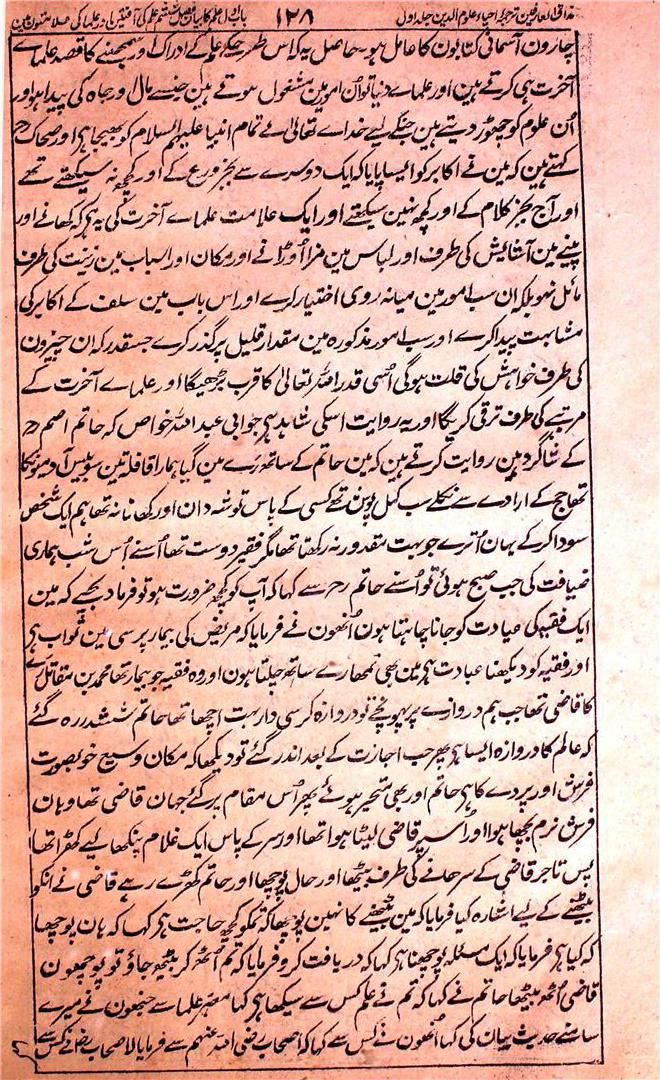 مذاق العارفین ترجمہ احیاء علوم الدین جلد اول ١٢٨ باب اول علم کا بیان فصل ششم علم کی آفتین اور علما کی علامتون مین
چارون آسمانی کتابون کا عامل ہو۔ حاصل یہ کہ اس طرح علم کے ادراک اور سمجھنے کا قصد علماے
آخرت ہی کرتے ہین اور علماے دنیا تو اُن امور مین مشغول ہوتے ہین جنسے مال و جاہ کی پیدا ہو اور
اُن علوم کو چھوڑ دیتے ہین جنکے لیے خداے تعالیٰ نے تمام انبیا علیہم السلام کو بھیجا ہی اور ضحاک رح
کہتے ہین کہ مین نے اکابر کو ایسا پایا کہ ایک دوسرے سے بجز ورع کے اور کچھ نہ سیکھتے تھے
اور آج بجز کلام کے اور کچھ نہین سیکھتے اور ایک علامت علماے آخرت کی یہ ہی کہ کھانے اور
پینے مین آسایش کی طرف اور لباس مین مزا اُوڑانے اور مکان اور اسباب مین زینت کی طرف
مائل نہو بلکہ ان سب امور مین میانہ روی اختیار کرے اور اس باب مین سلف کے اکابر کی
مشابہت پیدا کرے اور سب امور مذکورہ مین مقدار قلیل پر گذر کرے جسقدر کہ ان چیزون
کی طرف خواہش کی قلت ہوگی اُسی قدر اللہ تعالیٰ کا قرب بڑھیگا اور علماے آخرت کے
مرتبے کی طرف ترقی کریگا اور یہ روایت اسکی شاہد ہی جو ابی عبد اللہ خواص کہ حاتم اصم رح
کے شاگرد ہین روایت کرتے ہین کہ مین حاتم کے ساتھ رَے مین گیا ہمارا قافلہ تین سو بیس آدمیونکا
تھا حج کے ارادے سے نکلے سب کمل پہنے تھے کسی کے پاس توشہ دان اور کھانا نہ تھا ہم ایک شخص
سوداگر کے یہان اُترے جو بہت مقدور نہ رکھتا تھا مگر فقیر دوست تھا اُسنے اُس شب ہماری
ضیافت کی جب صبح ہوئی تو اُسنے حاتم رح سے کہا کہ آپ کو کچھ ضرورت ہو تو فرما دیجیے کہ مین
ایک فقیہ کی عیادت کو جانا چاہتا ہون اُنھون نے فرمایا کہ مریض کی بیمار پرسی مین ثواب ہی
اور فقیہ کو دیکھنا عبادت ہی مین بھی تمھارے ساتھ چلتا ہون اور وہ فقیہ جو بیمار تھا محمد بن مقاتل رَے
کا قاضی تھا جب ہم دروازے پر پہونچے تو دروازہ کرسی دار بہت اچھا تھا حاتم ششدر رہ گئے
کہ عالم کا دروازہ ایسا ہی پھر جب اجازت کے بعد اندر گئے تو دیکھا کہ مکان وسیع خوبصورت
فرش اور پردے کا ہی حاتم اور بھی متحیر ہوئے پھر اُس مقام پر گئے جہان قاضی تھا وہان
فرش نرم بچھا ہوا اور اُسپر قاضی لیٹا ہوا تھا اور سر کے پاس ایک غلام پنکھا لیے کھڑا تھا
پس تاجر قاضی کے سرھانے کی طرف بیٹھا اور حال پوچھا اور حاتم کھڑے رہے قاضی نے انکو
بیٹھنے کے لیے اشارہ کیا فرمایا کہ مین بیٹھنے کا نہین پوچھا کہ تمکو کچھ حاجت ہی کہا کہ ہان پوچھا
کہ کیا ہی فرمایا کہ ایک مسئلہ پوچھنا ہی کہا کہ دریافت کرو فرمایا کہ تم اُٹھ کر بیٹھ جاؤ تو پوچھون
قاضی اُٹھ بیٹھا حاتم نے کہا کہ تم نے علم کس سے سیکھا ہی کہا معتبر علما سے جنھون نے میرے
سامنے حدیث بیان کی کہا اُنھون نے کس سے کہا کہ اصحاب رضی اللہ عنہم سے فرمایا کہ اصحاب رض نے کس سے